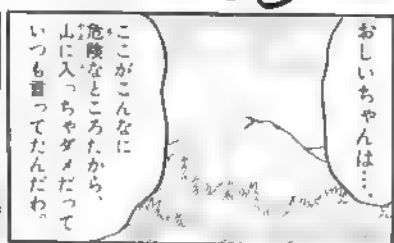 おじいちゃんは…、
ここがこんなに
危険なところだから、
山に入っちゃダメだって
いつも言ってたんだわ。